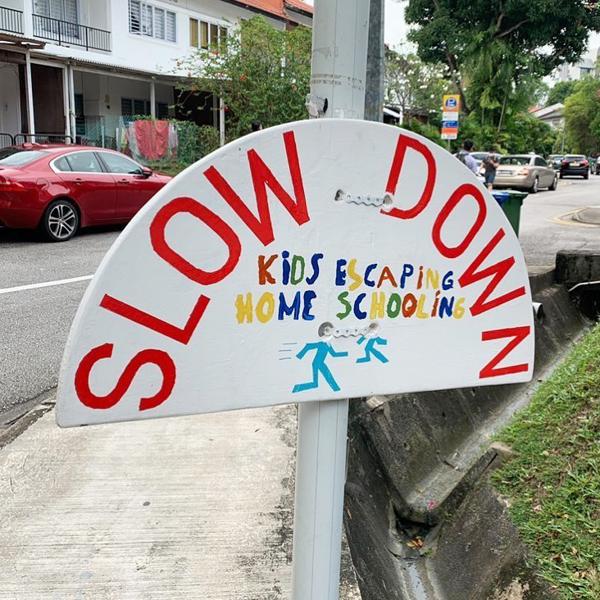 SLOW DOWN
KiDS ESCAPiNG
HOME SCHOOLiNG